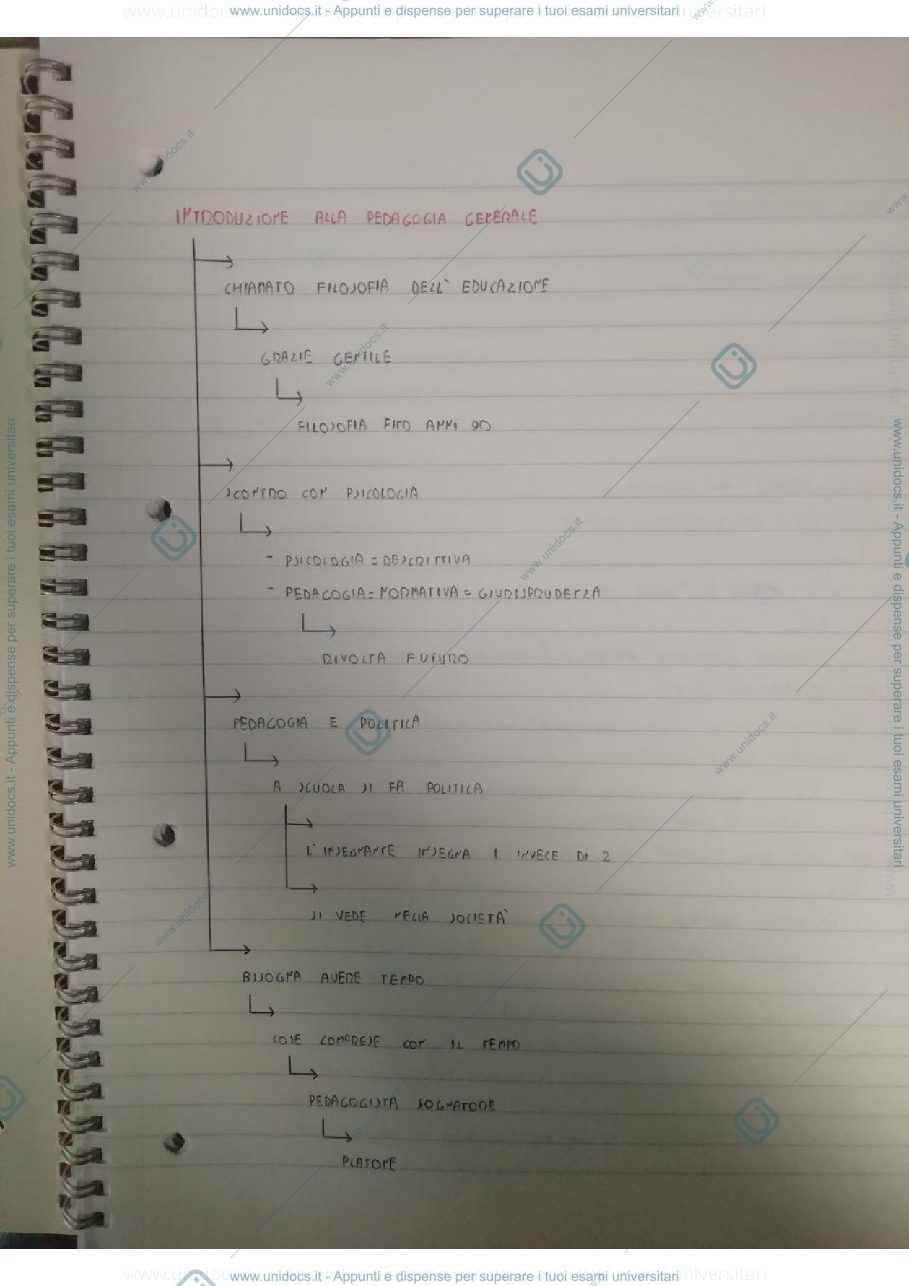 www.unidocs.it - Appunti e dispense per superare i tuoi esami universitari
INTRODUZIONE ALLA PEDAGOGIA GENERALE
CHIAMATO FILOSOFIA DELL' EDUCAZIONE
GRAZIE GENTILE
FILOSOFIA FINO ANNI 90
SCONTRO CON PSICOLOGIA
- PSICOLOGIA = DESCRITTIVA
- PEDAGOGIA = NORMATIVA = GIURISPRUDENZA
RIVOLTA FUTURO
PEDAGOGIA E POLITICA
A SCUOLA SI FA POLITICA
L'INSEGNANTE INSEGNA 1 INVECE DI 2
SI VEDE NELLA SOCIETÀ
BISOGNA AVERE TEMPO
COSE COMPRESE CON IL TEMPO
PEDAGOGISTA SOGNATORE
PLATONE
www.unidocs.it - Appunti e dispense per superare i tuoi esami universitari
www.unidocs.it - Appunti e dispense per superare i tuoi esami universitari
www.unidocs.it - Appunti e dispense per superare i tuoi esami universitari